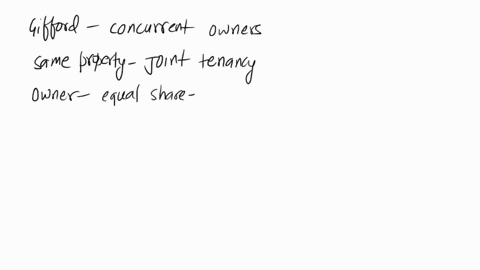 Gifford - concurrent owners
same property - Joint tenancy
owner - equal share -